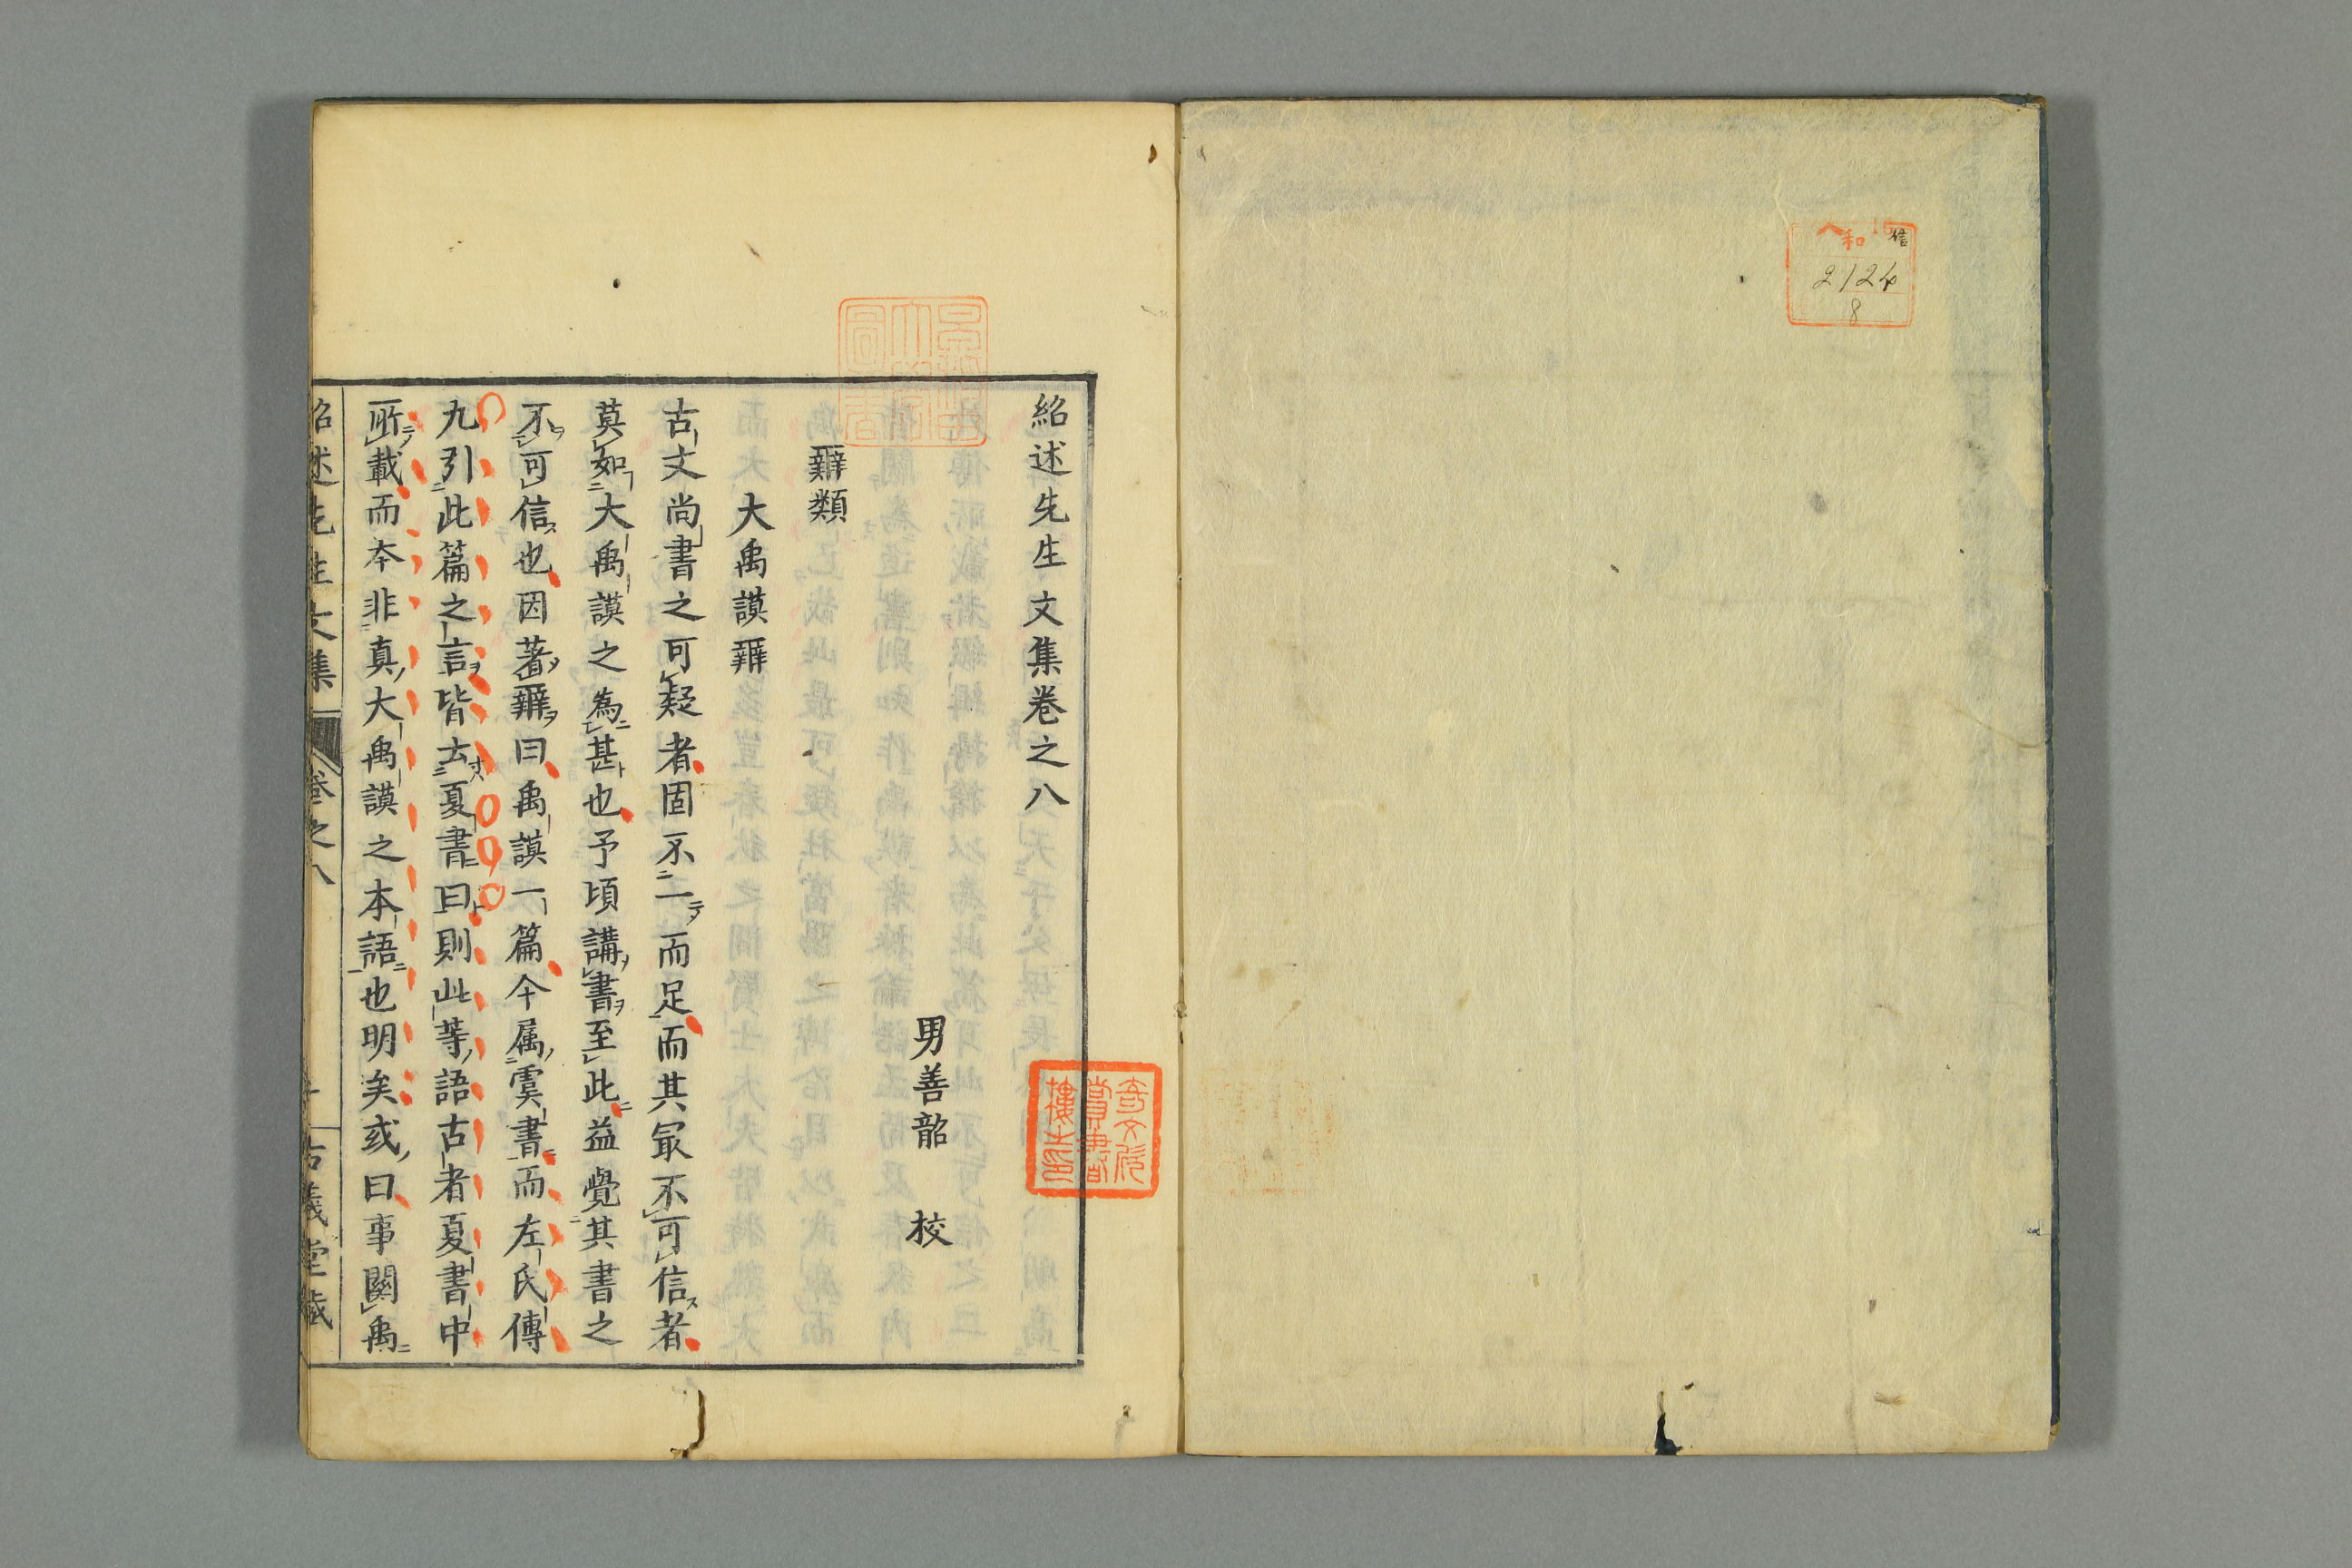 和 16 信
2124
8
紹述先生文集卷之八
男善韶 校
辨類
大禹謨辨
古文尚書之可疑者固不一而足而其冣不可信者
莫如大禹謨之為甚也予頃講書至此益覺其書之
不可信也因著辨曰禹謨一篇今属虞書而左氏傳
九引此篇之言皆去夏書曰則此等語古者夏書中
所載而本非真大禹謨之本語也明矣或曰事関禹
紹述先生文集 卷之八 古義堂藏